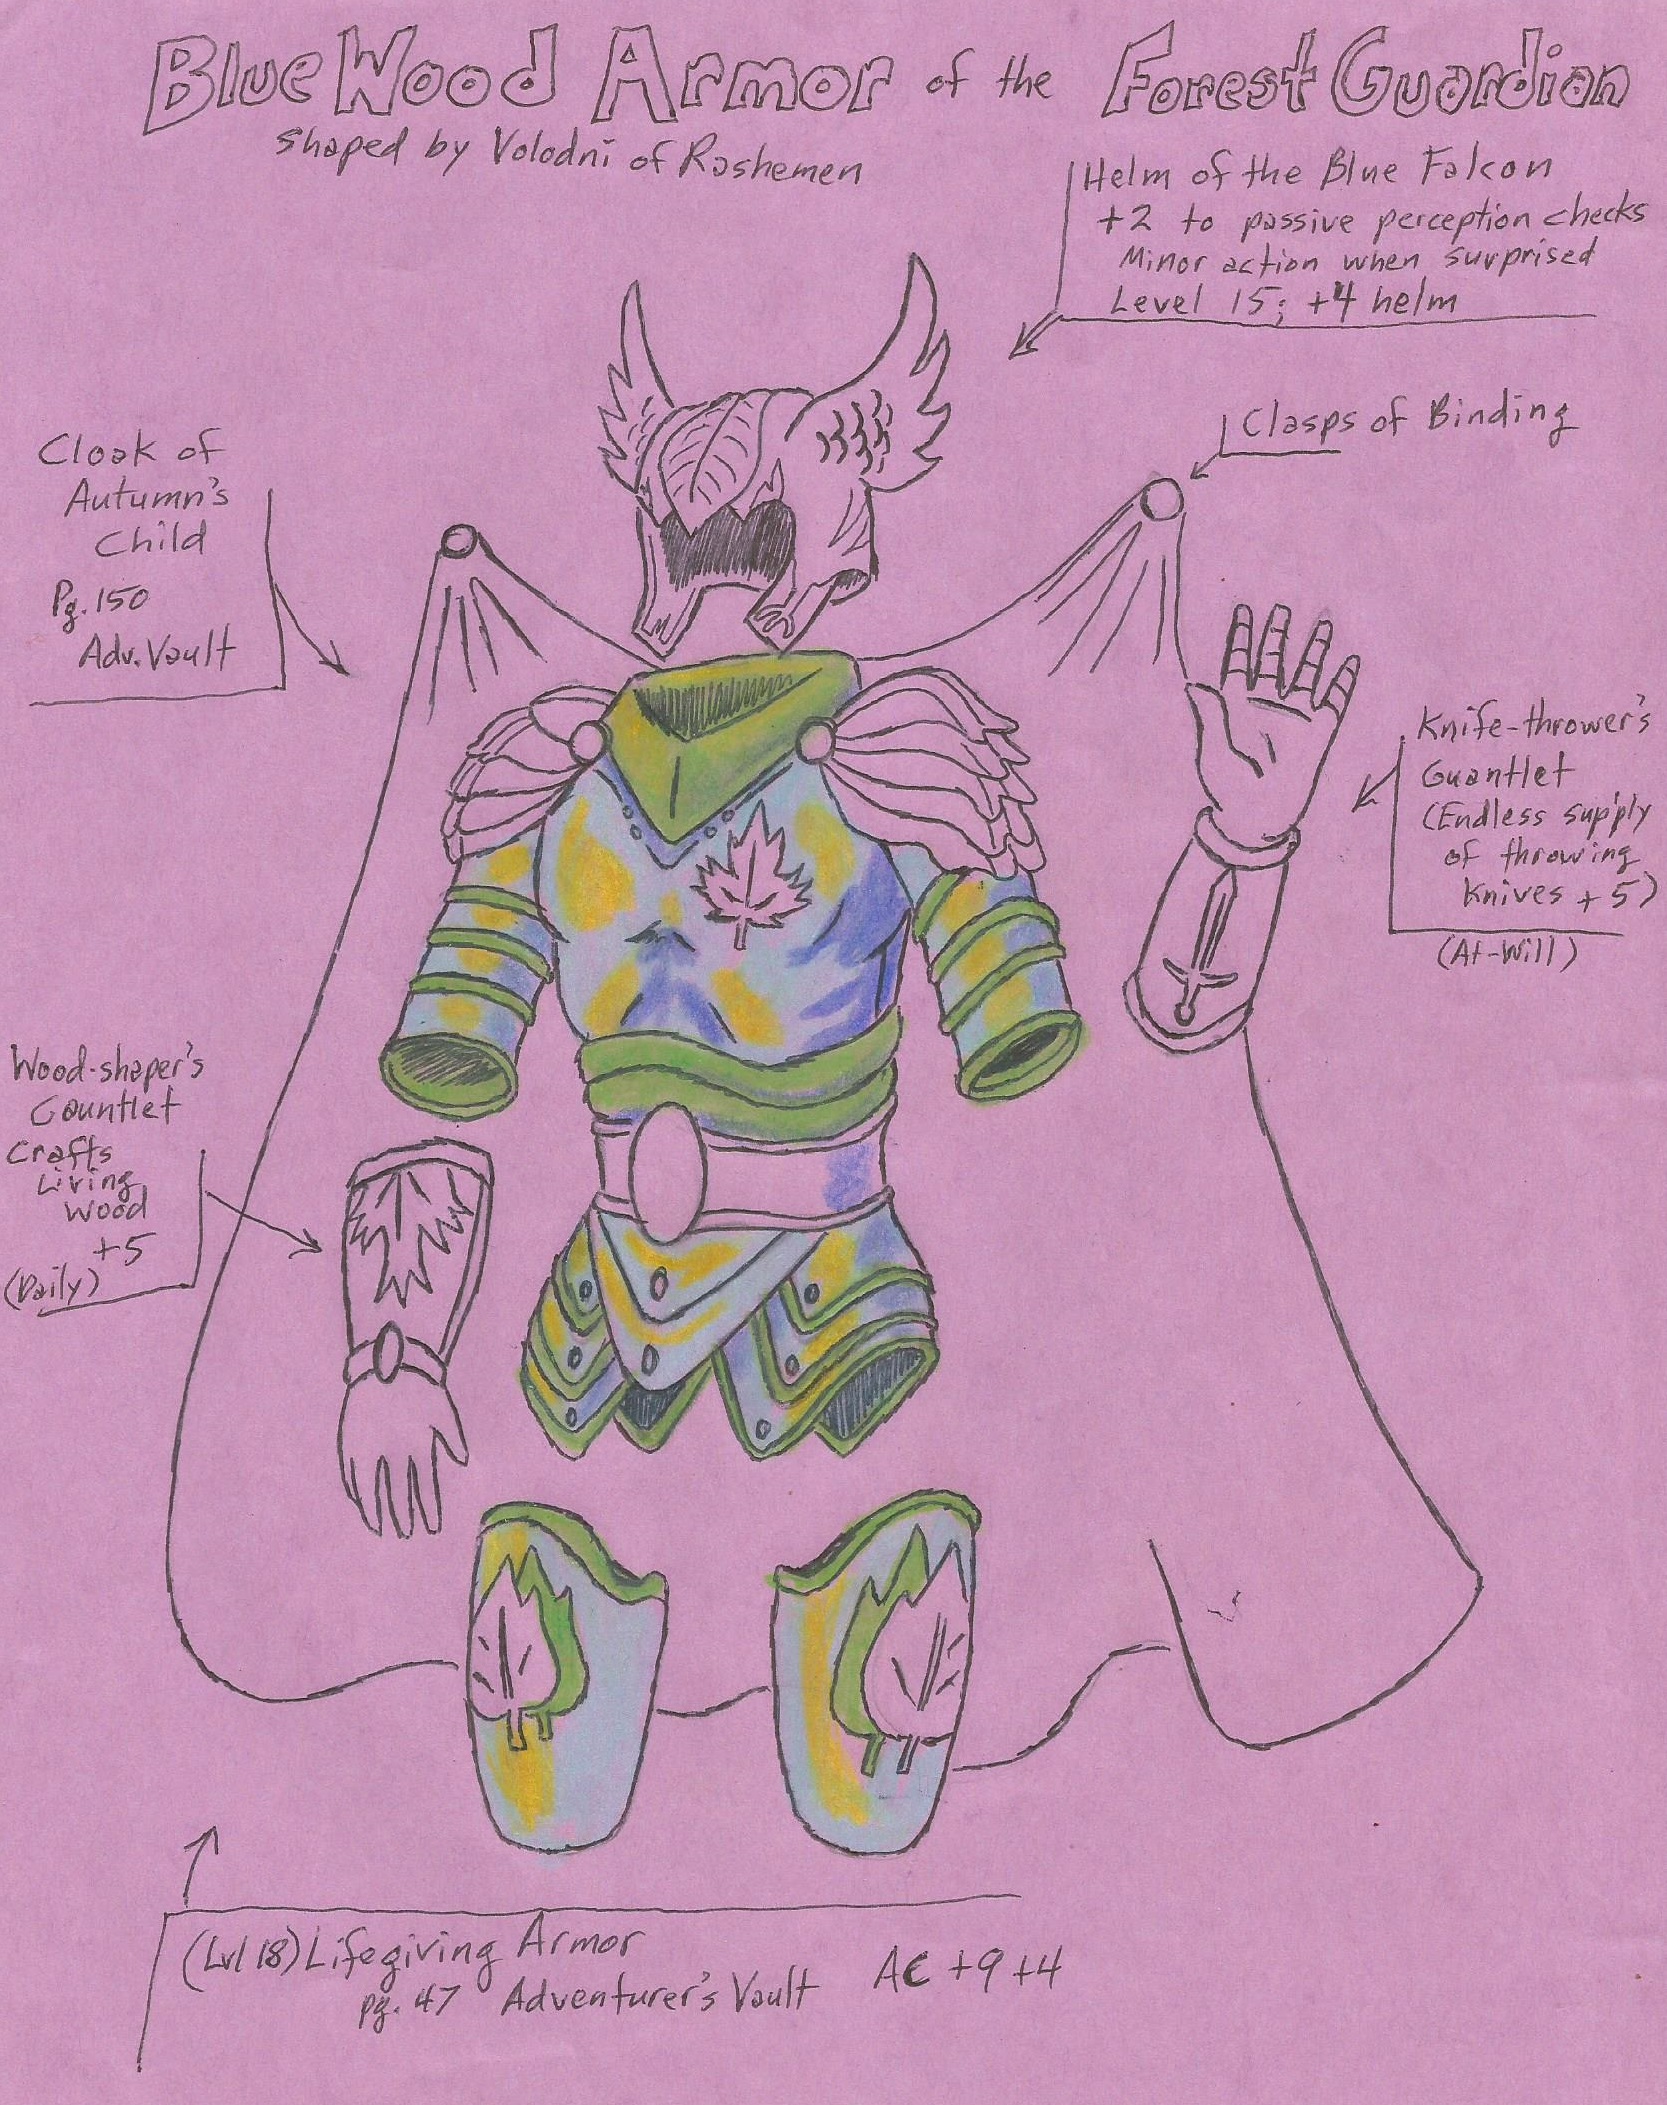 Blue Wood Armor of the Forest Guardian
shaped by Volodni of Rashemen
Helm of the Blue Falcon
+2 to passive perception checks
Minor action when surprised
Level 15; +4 helm
Clasps of Binding
Cloak of
Autumn's
Child
Pg. 150
Adv. Vault
Knife-thrower's
Guantlet
(Endless supply
of throwing
Knives +5)
(At-Will)
Wood-shaper's
Gauntlet
Crafts
Living
Wood
+5
(Daily)
(Lvl 18) Lifegiving Armor
pg. 47 Adventurer's Vault
AC +9 +4